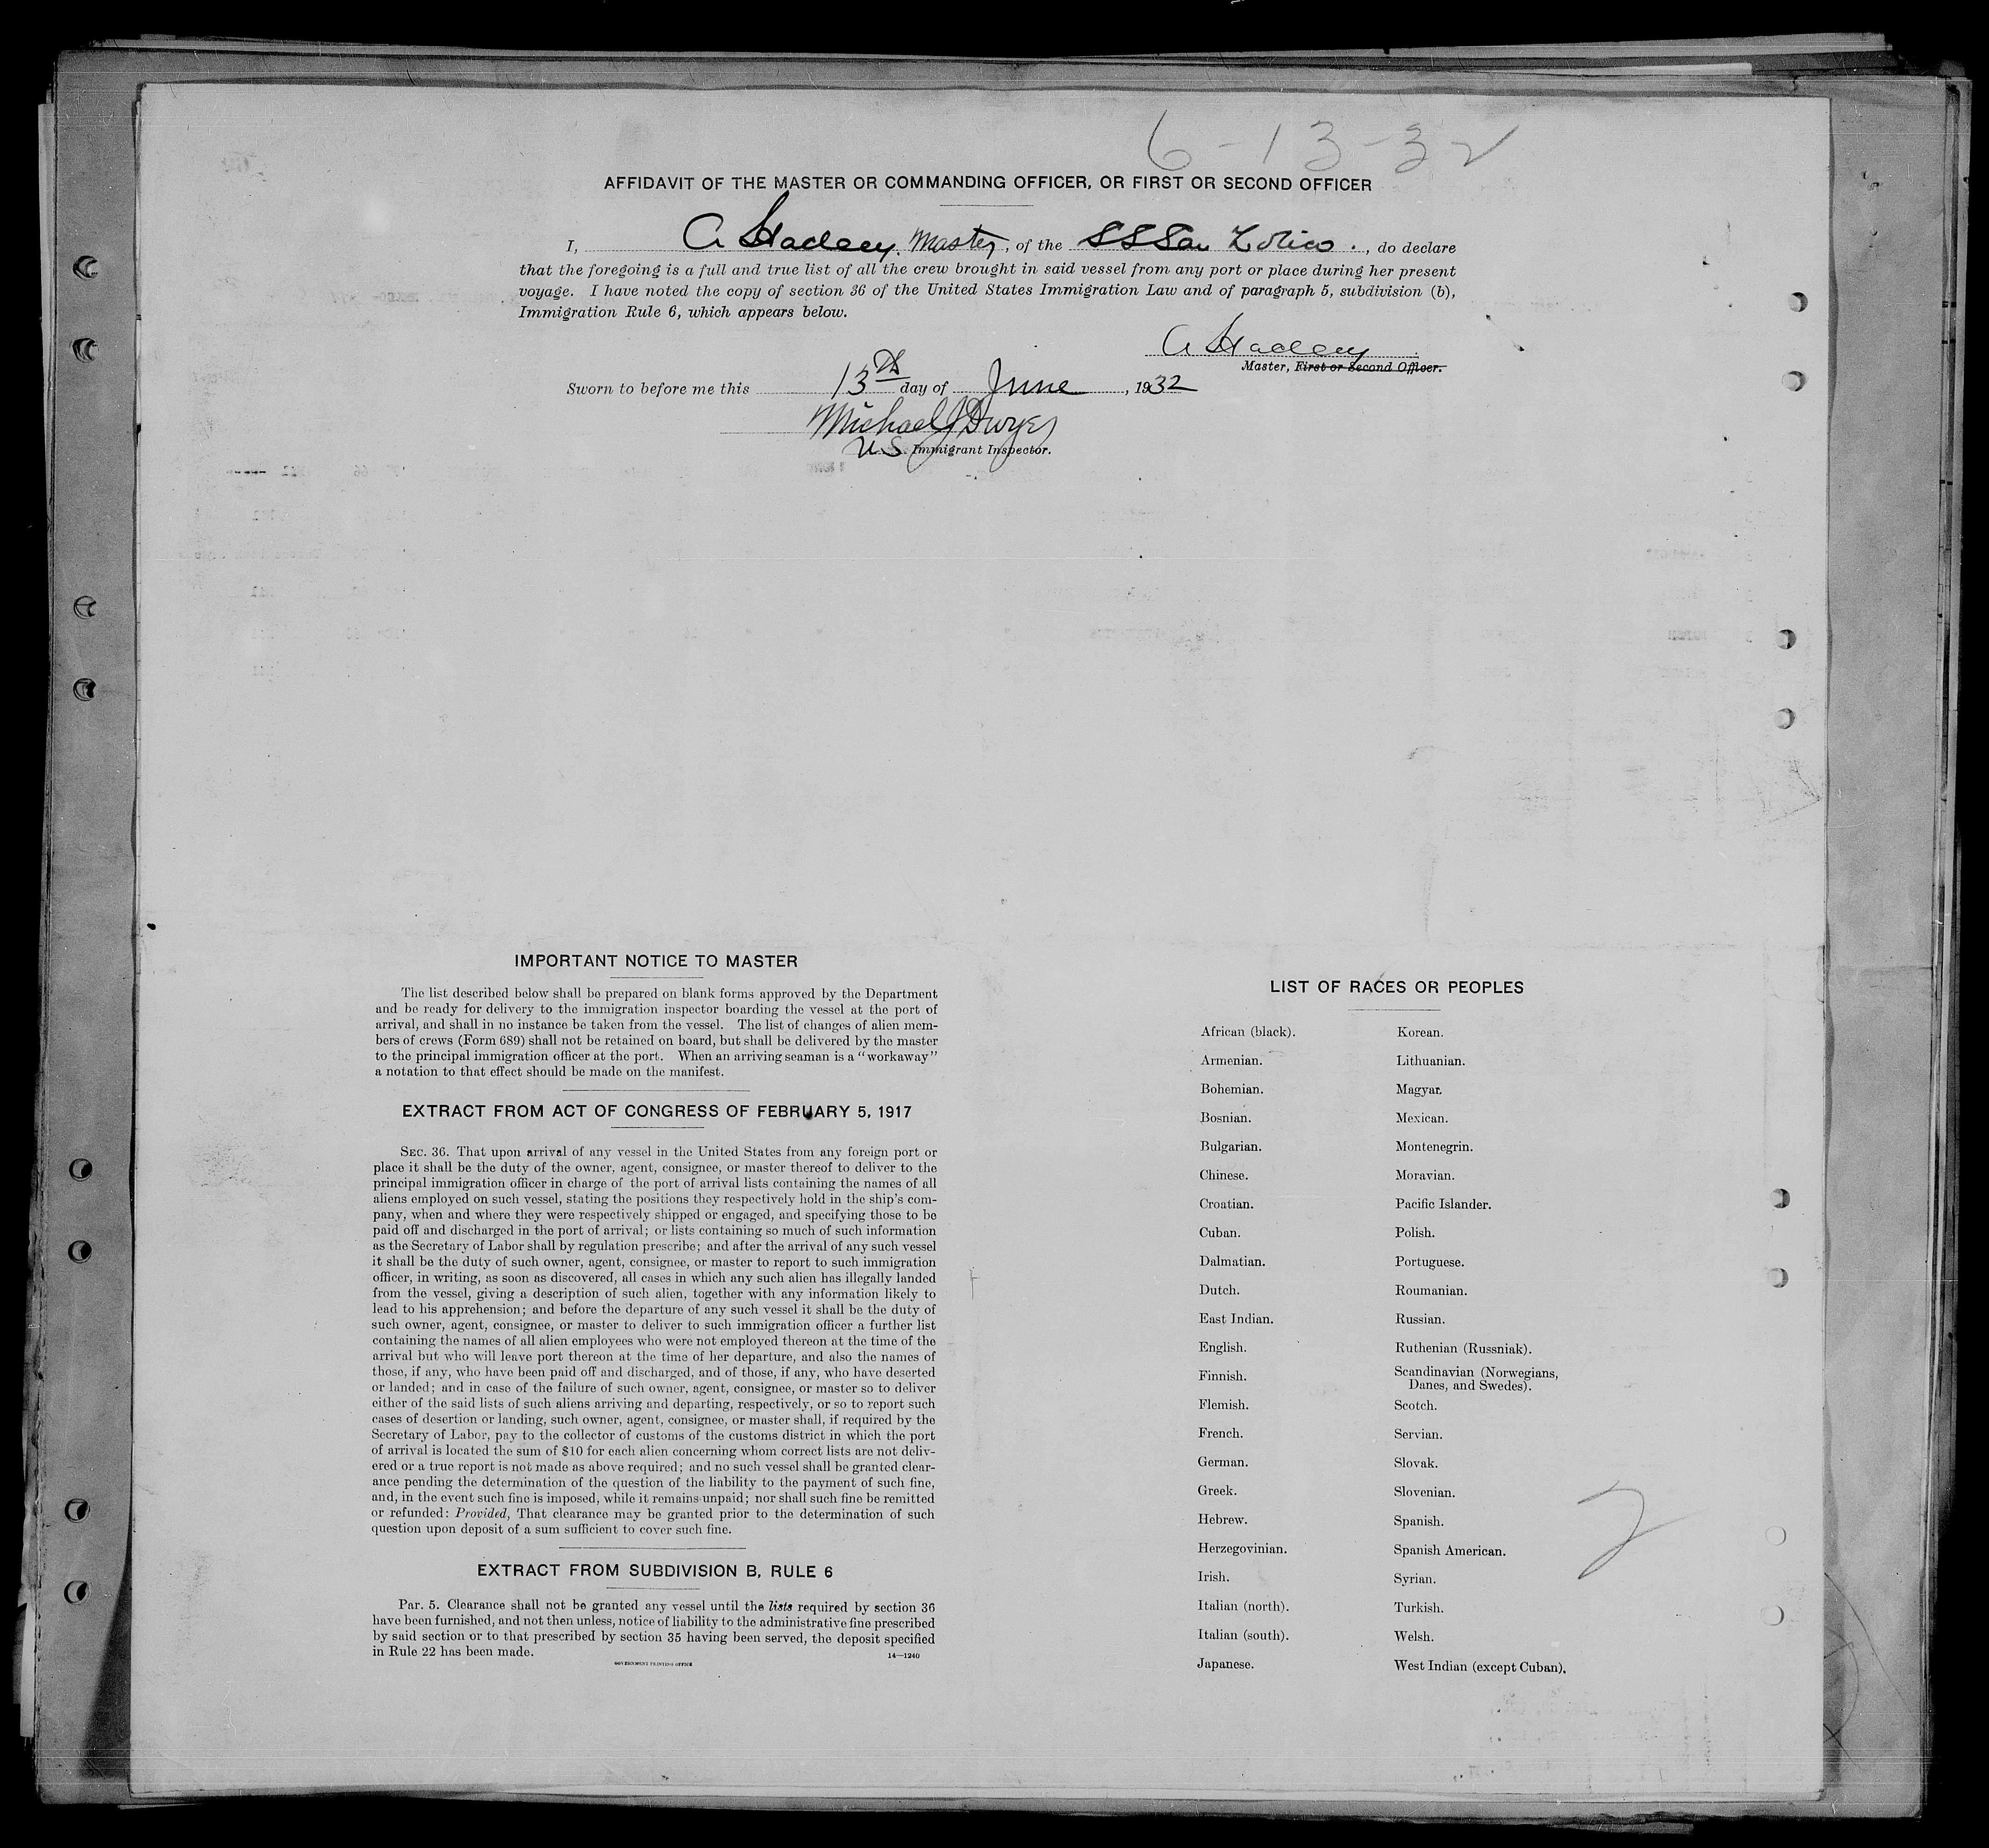 6-13-32
AFFIDAVIT OF THE MASTER OR COMMANDING OFFICER, OR FIRST OR SECOND OFFICER
I, A Master, of the SS San , do declare
that the foregoing is a full and true list of all the crew brought in said vessel from any port or place during her present
voyage. I have noted the copy of section 36 of the United States Immigration Law and of paragraph 5, subdivision (b),
Immigration Rule 6, which appears below.
A
Master, First or Second Officer.
Sworn to before me this 13th day of June, 1932
Michael J Dwyer
U.S. Immigrant Inspector.
IMPORTANT NOTICE TO MASTER
The list described below shall be prepared on blank forms approved by the Department
and be ready for delivery to the immigration inspector boarding the vessel at the port of
arrival, and shall in no instance be taken from the vessel. The list of changes of alien mem-
bers of crews (Form 689) shall not be retained on board, but shall be delivered by the master
to the principal immigration officer at the port. When an arriving seaman is a "workaway"
a notation to that effect should be made on the manifest.
EXTRACT FROM ACT OF CONGRESS OF FEBRUARY 5, 1917
SEC. 36. That upon arrival of any vessel in the United States from any foreign port or
place it shall be the duty of the owner, agent, consignee, or master thereof to deliver to the
principal immigration officer in charge of the port of arrival lists containing the names of all
aliens employed on such vessel, stating the positions they respectively hold in the ship's com-
pany, when and where they were respectively shipped or engaged, and specifying those to be
paid off and discharged in the port of arrival; or lists containing so much of such information
as the Secretary of Labor shall by regulation prescribe; and after the arrival of any such vessel
it shall be the duty of such owner, agent, consignee, or master to report to such immigration
officer, in writing, as soon as discovered, all cases in which any such alien has illegally landed
from the vessel, giving a description of such alien, together with any information likely to
lead to his apprehension; and before the departure of any such vessel it shall be the duty of
such owner, agent, consignee, or master to deliver to such immigration officer a further list
containing the names of all alien employees who were not employed thereon at the time of the
arrival but who will leave port thereon at the time of her departure, and also the names of
those, if any, who have been paid off and discharged, and of those, if any, who have deserted
or landed; and in case of the failure of such owner, agent, consignee, or master so to deliver
either of the said lists of such aliens arriving and departing, respectively, or so to report such
cases of desertion or landing, such owner, agent, consignee, or master shall, if required by the
Secretary of Labor, pay to the collector of customs of the customs district in which the port
of arrival is located the sum of $10 for each alien concerning whom correct lists are not deliv-
ered or a true report is not made as above required; and no such vessel shall be granted clear-
ance pending the determination of the question of the liability to the payment of such fine,
and, in the event such fine is imposed, while it remains unpaid; nor shall such fine be remitted
or refunded: Provided, That clearance may be granted prior to the determination of such
question upon deposit of a sum sufficient to cover such fine.
EXTRACT FROM SUBDIVISION B, RULE 6
Par. 5. Clearance shall not be granted any vessel until the lists required by section 36
have been furnished, and not then unless, notice of liability to the administrative fine prescribed
by said section or to that prescribed by section 35 having been served, the deposit specified
in Rule 22 has been made.
14—1240
GOVERNMENT PRINTING OFFICE
LIST OF RACES OR PEOPLES
African (black).
Armenian.
Bohemian.
Bosnian.
Bulgarian.
Chinese.
Croatian.
Cuban.
Dalmatian.
Dutch.
East Indian.
English.
Finnish.
Flemish.
French.
German.
Greek.
Hebrew.
Herzegovinian.
Irish.
Italian (north).
Italian (south).
Japanese.
Korean.
Lithuanian.
Magyar.
Mexican.
Montenegrin.
Moravian.
Pacific Islander.
Polish.
Portuguese.
Roumanian.
Russian.
Ruthenian (Russniak).
Scandinavian (Norwegians,
Danes, and Swedes).
Scotch.
Servian.
Slovak.
Slovenian.
Spanish.
Spanish American.
Syrian.
Turkish.
Welsh.
West Indian (except Cuban).
2